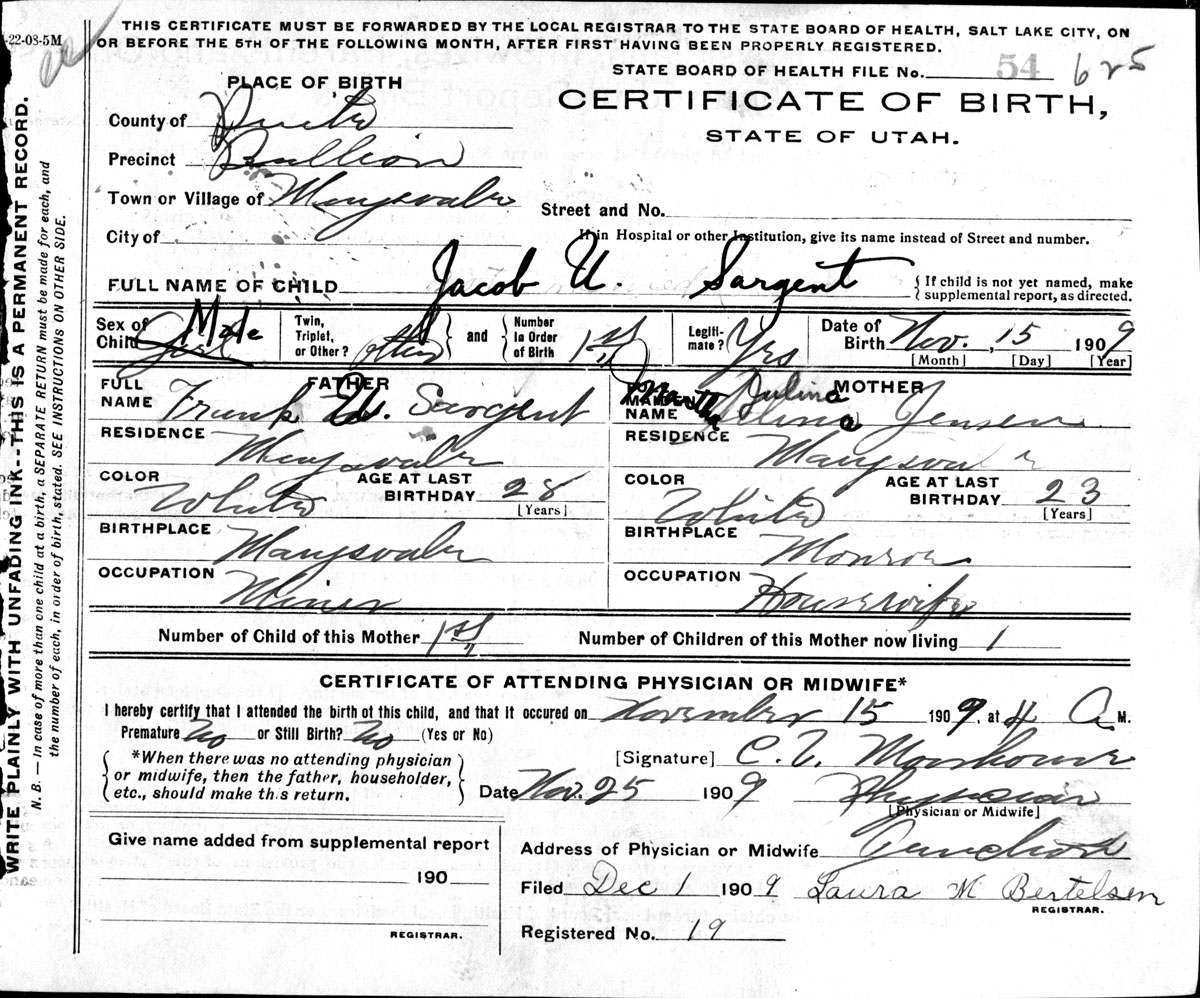 THIS CERTIFICATE MUST BE FORWARDED BY THE LOCAL REGISTRAR TO THE STATE BOARD OF HEALTH, SALT LAKE CITY, ON
OR BEFORE THE 5TH OF THE FOLLOWING MONTH, AFTER FIRST HAVING BEEN PROPERLY REGISTERED.
-22-08-5M
STATE BOARD OF HEALTH FILE No. 54 625
PLACE OF BIRTH
CERTIFICATE OF BIRTH,
STATE OF UTAH.
County of Piute
Precinct Bullion
Town or Village of Marysvale
Street and No.
City of
If in Hospital or other Institution, give its name instead of Street and number.
FULL NAME OF CHILD Jacob U. Sargent
{ If child is not yet named, make
supplemental report, as directed.
Sex of Child Male Girl
Twin, Triplet, or Other? and Number In Order of Birth 1st
Legitimate? Yes
Date of Birth Nov. 15 1909
[Month] [Day] [Year]
FATHER
FULL NAME Frank W. Sargent
RESIDENCE Marysvale
COLOR White
AGE AT LAST BIRTHDAY 28
[Years]
BIRTHPLACE Marysvale
OCCUPATION Miner
MOTHER
MAIDEN NAME Julina Jensen
RESIDENCE Marysvale
COLOR White
AGE AT LAST BIRTHDAY 23
[Years]
BIRTHPLACE Monroe
OCCUPATION Housewife
Number of Child of this Mother 1st
Number of Children of this Mother now living 1
CERTIFICATE OF ATTENDING PHYSICIAN OR MIDWIFE*
I hereby certify that I attended the birth of this child, and that it occured on November 15 1909, at 4 A M.
Premature No or Still Birth? No (Yes or No)
[Signature] C. V.
*When there was no attending physician
or midwife, then the father, householder,
etc., should make this return.
Date Nov. 25 1909 Physician
[Physician or Midwife]
Give name added from supplemental report
190
REGISTRAR.
Address of Physician or Midwife Junction
Filed Dec 1 1909 Laura M Bertelsen
REGISTRAR.
Registered No. 19
WRITE PLAINLY WITH UNFADING INK--THIS IS A PERMANENT RECORD.
N. B. — In case of more than one child at a birth, a SEPARATE RETURN must be made for each, and
the number of each, in order of birth, stated. SEE INSTRUCTIONS ON OTHER SIDE.